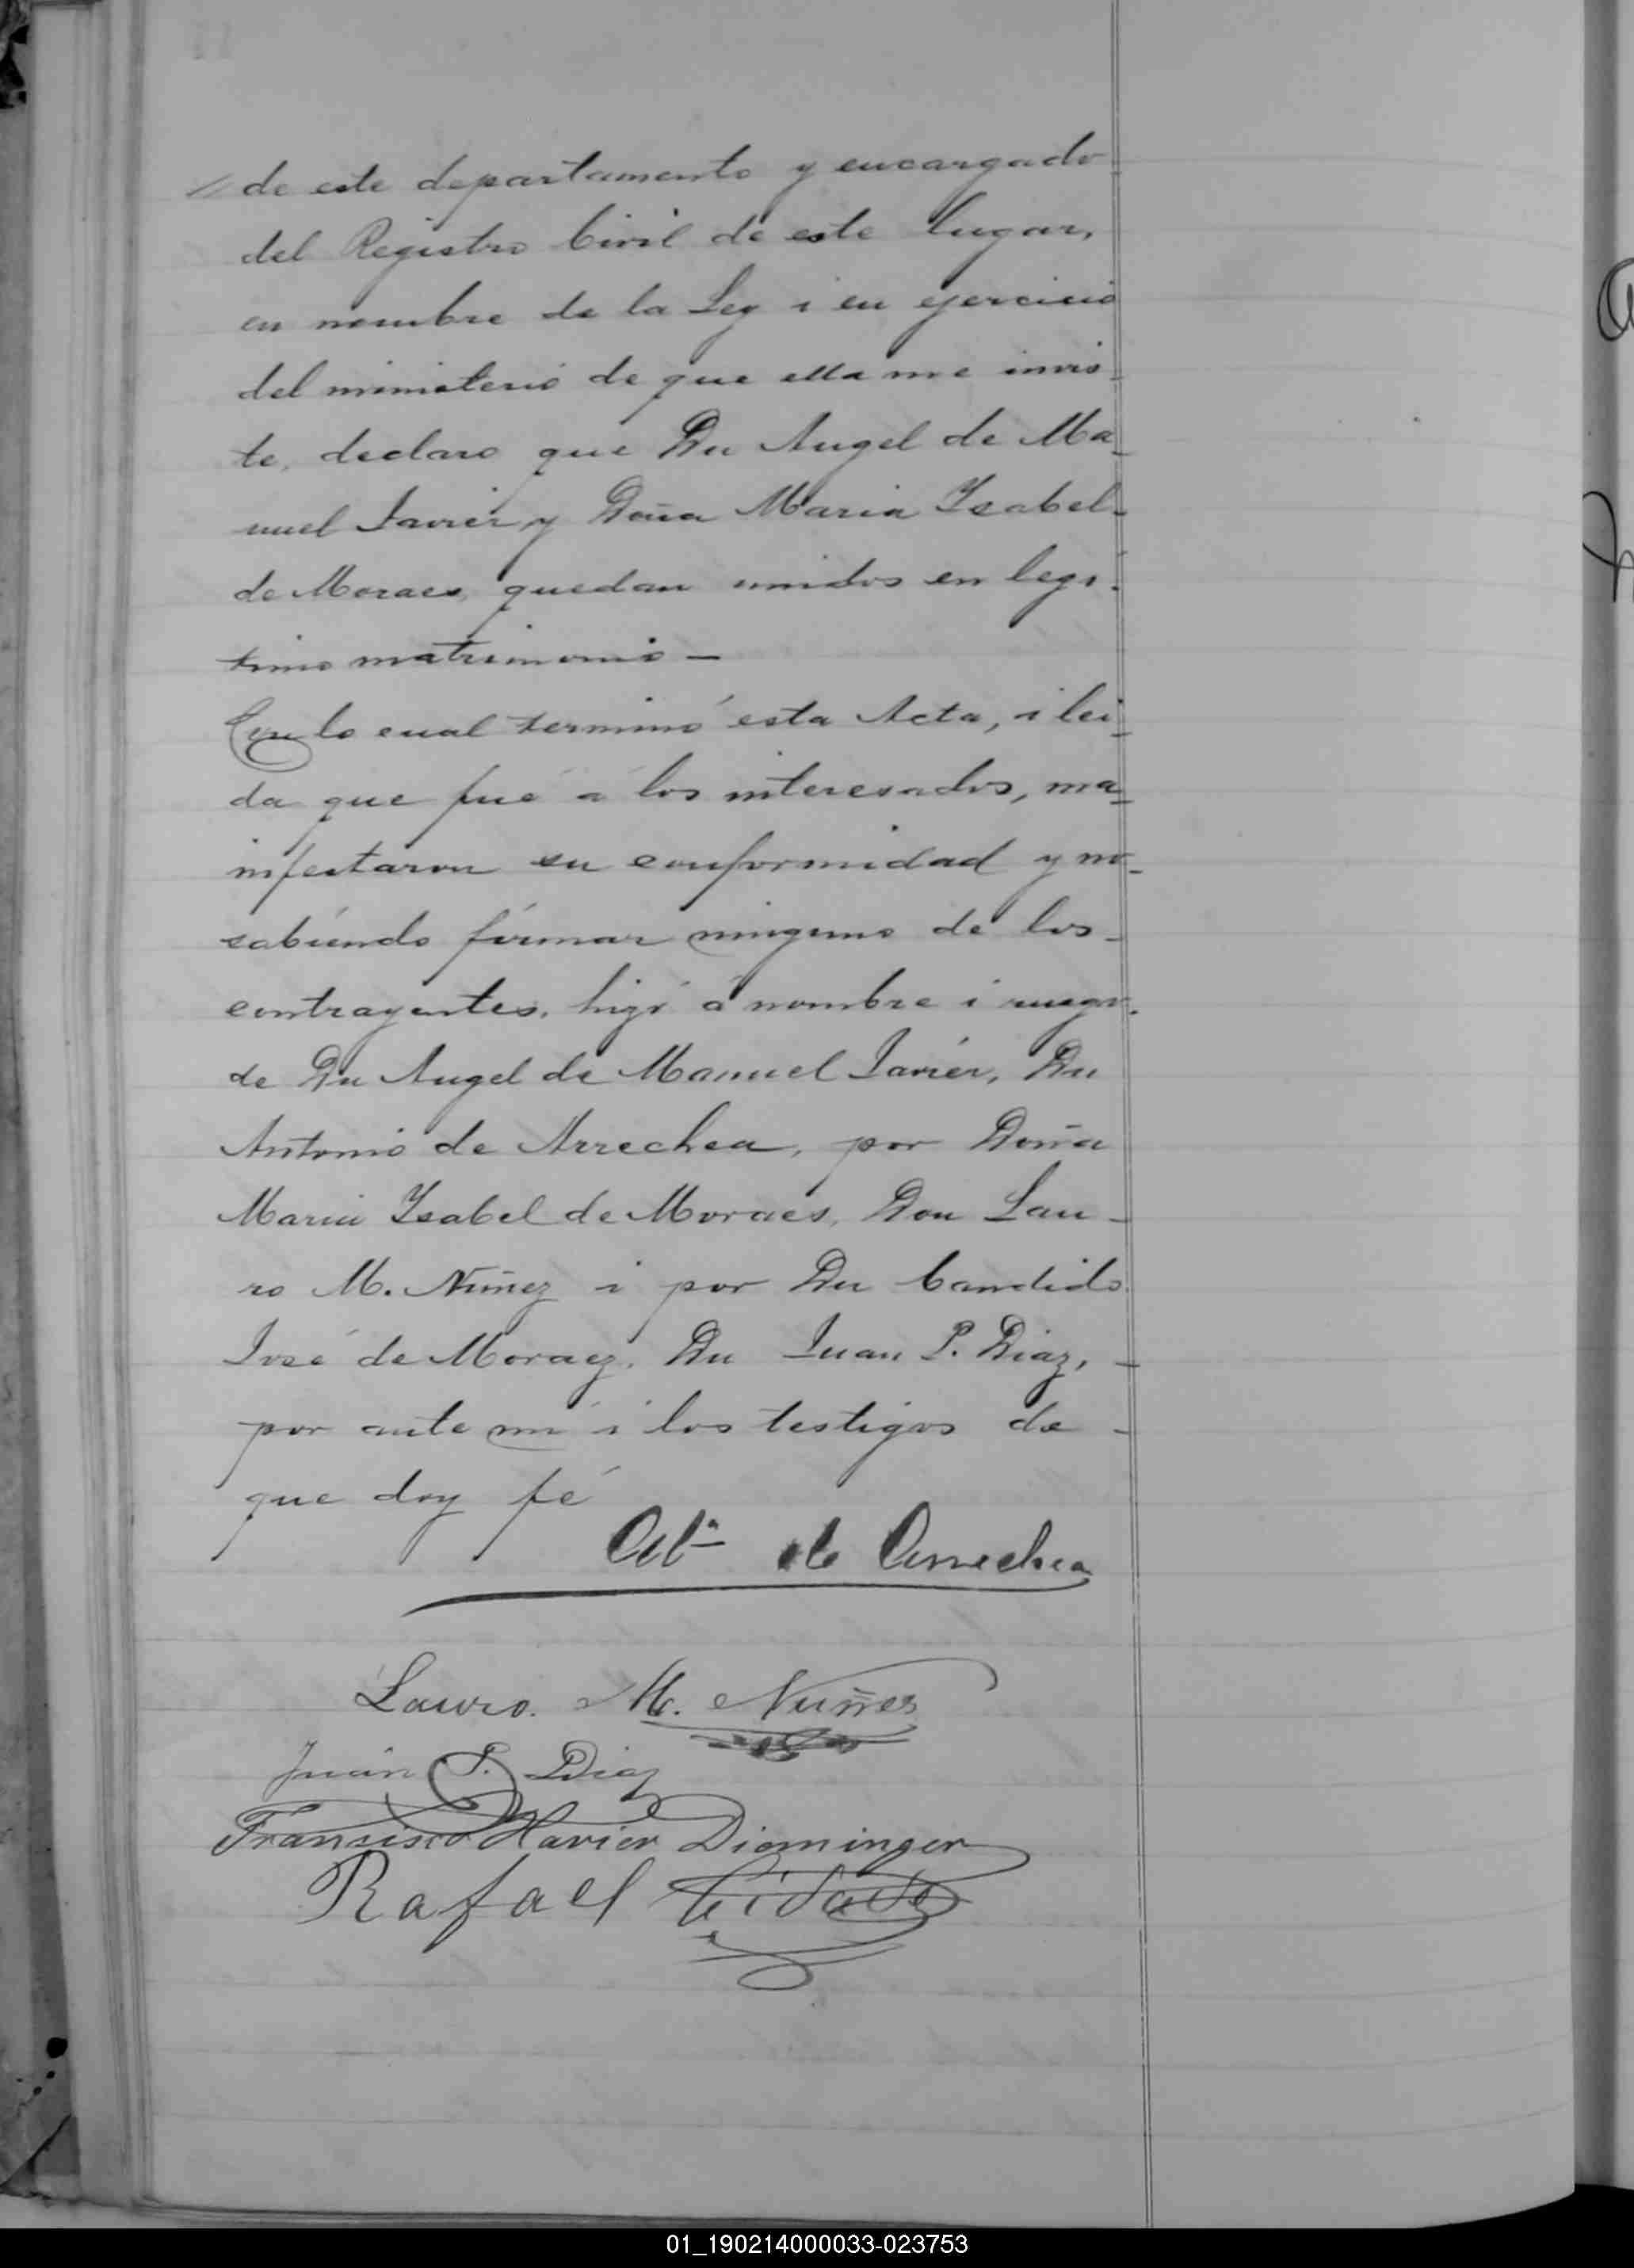 // de este departamento y encargado
del Registro Civil de este lugar,
en nombre de la Ley i en ejercicio
del ministerio de que ella me invis-
te, declaro que Dn Angel de Ma-
nuel Javier y Doña Maria Ysabel-
de Moraes, quedan unidos en legi-
timo matrimonio -
Con lo cual terminó esta Acta, i lei-
da que fué á los interesados, ma-
nifestaron su conformidad y no-
sabiendo firmar ninguno de los-
contrayentes, hizo á nombre i ruego-
de Dn Angel de Manuel Javier, Dn
Antonio de Arrechea, por Doña
Maria Ysabel de Moraes, Don Lau-
ro M. Nuñez i por Dn Candido
José de Moraez, Dn Juan P. Diaz, -
por ante mi i los testigos de -
que doy fé
de Arrechea
Lauro. M. Nuñes
Juan P. Diaz
Fransisco Xavier
Rafael
01_190214000033-023753